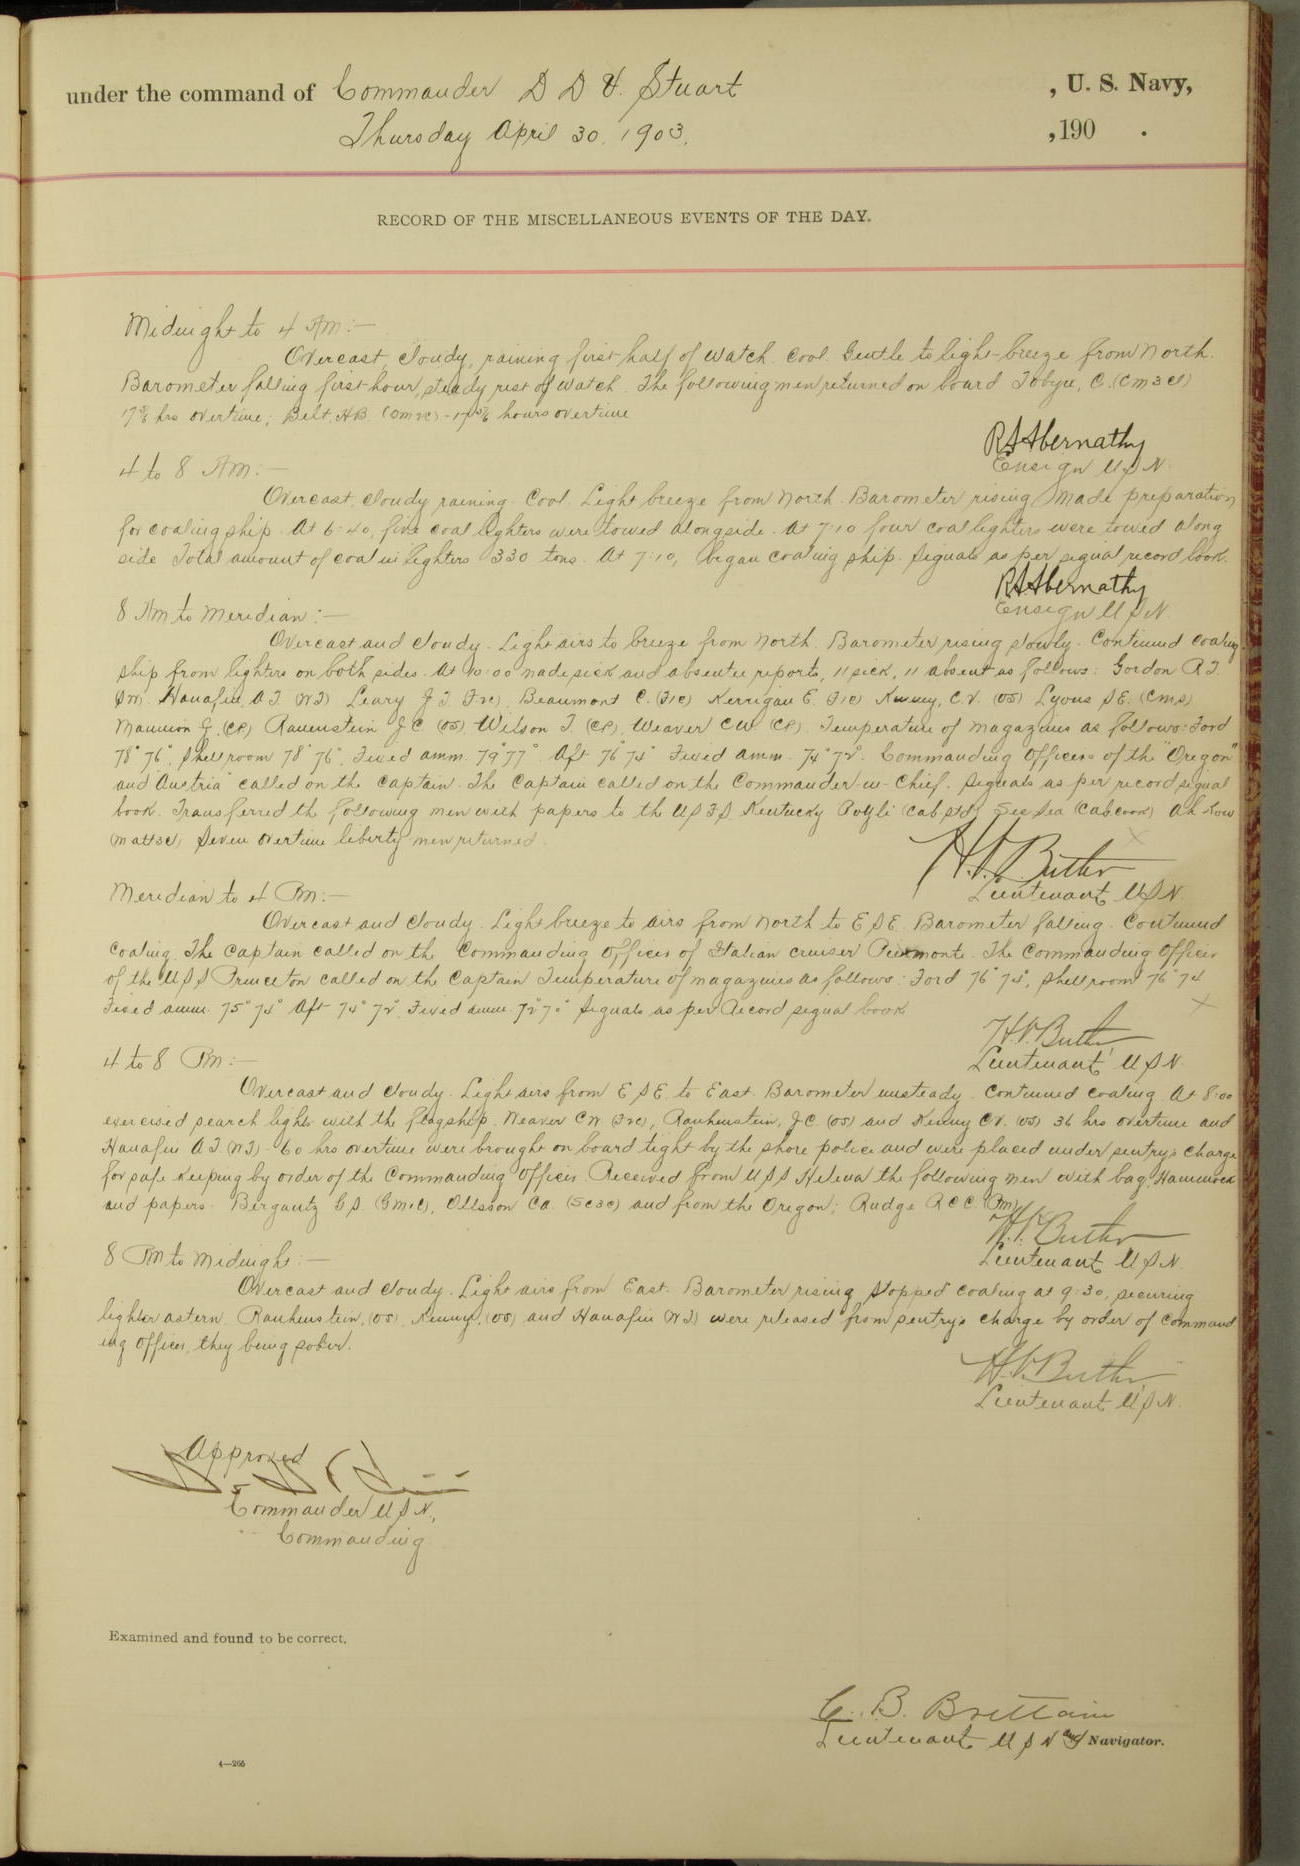 under the command of Commander D D V. Stuart , U. S. Navy,
Thursday April 30, 1903. ,190 .
RECORD OF THE MISCELLANEOUS EVENTS OF THE DAY.
Midnight to 4 Am:—
Overcast, cloudy, raining first half of watch. Cool. Gentle to light breeze from North.
Barometer falling first hour, steady rest of watch. The following men returned on board C. (Cm3cl)
hrs overtime; Belt, H.B. hours overtime
R A Abernathy
Ensign U S N.
4 to 8 Am:—
Overcast, cloudy raining. Cool. Light breeze from North. Barometer rising. Made preparation
for coaling ship. At 6:40, five coal lighters were towed alongside. At 7:10 four coal lighters were towed along
side Total amount of coal in lighters 330 tons. At 7:10, began coaling ship. Signals as per signal record book.
R A Abernathy
Ensign U S N.
8 Am to Meridian:—
Overcast and cloudy. Light airs to breeze from North. Barometer rising slowly. Continued coaling
ship from lighters on both sides. At 10:00 made sick and absentee reports, 11 sick, 11 absent as follows: Gordon R.T.
Hanafin A.T. (WT) Leary J.T. Beaumont C. (F1c) Kerrigan E. (F1c) Kenny, C.V. (OS) Lyons S.E. (Cms)
Mannion J. (CP) Rauenstein J C (OS) Wilson T. (CP) Weaver CW (CP). Temperature of magazines as follows: Ford
78° 76°, Shell room 78° 76°, Fixed amm. 79° 77° Aft 76° 74° Fixed amm. 74° 72°. Commanding Officers of the "Oregon"
and Austria" called on the Captain. The Captain called on the Commander-in-Chief. Signals as per record signal
book. Transferred the following men with papers to the U S F S Kentucky (Cab std) (Cab cook) Ah
(Matt3c) Seven overtime liberty men returned.
H.V. Butler
Lieutenant U S N.
Meridian to 4 Pm:—
Overcast and cloudy. Light breeze to airs from North to E S E. Barometer falling. Continued
coaling. The Captain called on the Commanding Officer of Italian cruiser Piemonte. The Commanding Officer
of the U S S Princeton called on the Captain Temperature of magazines as follows: Ford 76° 74°, Shell room 76° 74
Fixed amm. 75° 74° Aft 74° 72° Fixed amm. 72° 70° Signals as per Record signal book
H.V. Butler
Lieutenant U S N.
4 to 8 Pm:—
Overcast and cloudy. Light airs from E S E. to East. Barometer unsteady. Continued coaling. At 8:00
exercised search light with the flagship. Weaver CW Rauhenstein, J.C. (OS) and Kenny CV. (OS) 36 hrs overtime and
Hanafin A T (WT) 60 hrs overtime were brought on board tight by the shore police and were placed under sentry's charge
for safe keeping by order of the Commanding Officer. Received from U S S Helena the following men with bag, Hammock
and papers. Bergantz G S. (GM1C), Ollsson Ca. (Sc3c) and from the Oregon; Rudge R C C. (Pm)
H.V. Butler
Lieutenant U S N.
8 Pm to Midnight:—
Overcast and cloudy. Light airs from East. Barometer rising. Stopped coaling at 9:30, securing
lighter astern. Rauhenstein, (OS), Kenny, (OS) and Hanafin (WT) were released from sentry's charge by order of Command
ing Officer, they being sober.
H.V. Butler
Lieutenant U S N.
Approved
Commander U S N.,
Commanding
Examined and found to be correct.
C. B. Brittain
Lieutenant U S N and Navigator.
4—265